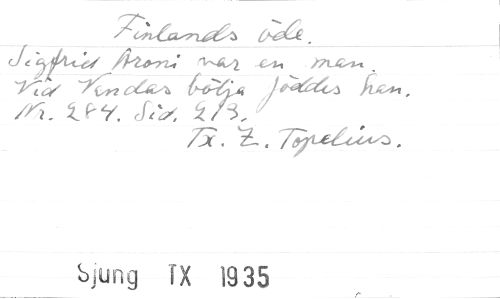 Finlands öde.
Sigfrid Aroni var en man.
Vid Vandas bölja föddes han.
Nr. 284. Sid. 213.
Tx. Z. Topelius.
Sjung TX 1935